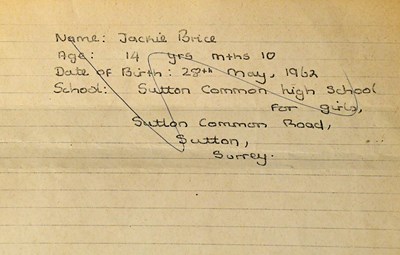 Name: Jackie Brice
Age: 14 yrs mths 10
Date of Birth: 28th May, 1962
School: Sutton Common high school
for girls,
Sutton Common Road,
Sutton,
Surrey.